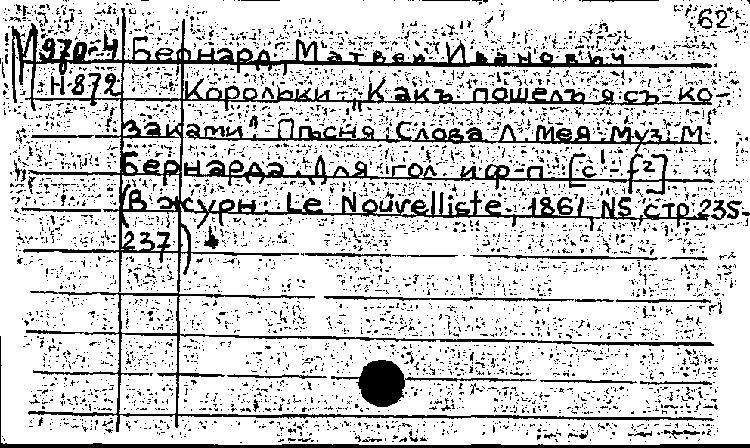 62
М 970-4 Бернард, Матвей Иванович
Н 872 Корольки. „Какъ пошелъ я съ ко-
заками". Пѣсня. Слова Л. Мея. Муз. М.
Бернарда. Для гол. и ф-п. [c¹-f²]
(В журн.: Le Nouvelliste, 1861, N5, стр. 235-
237)